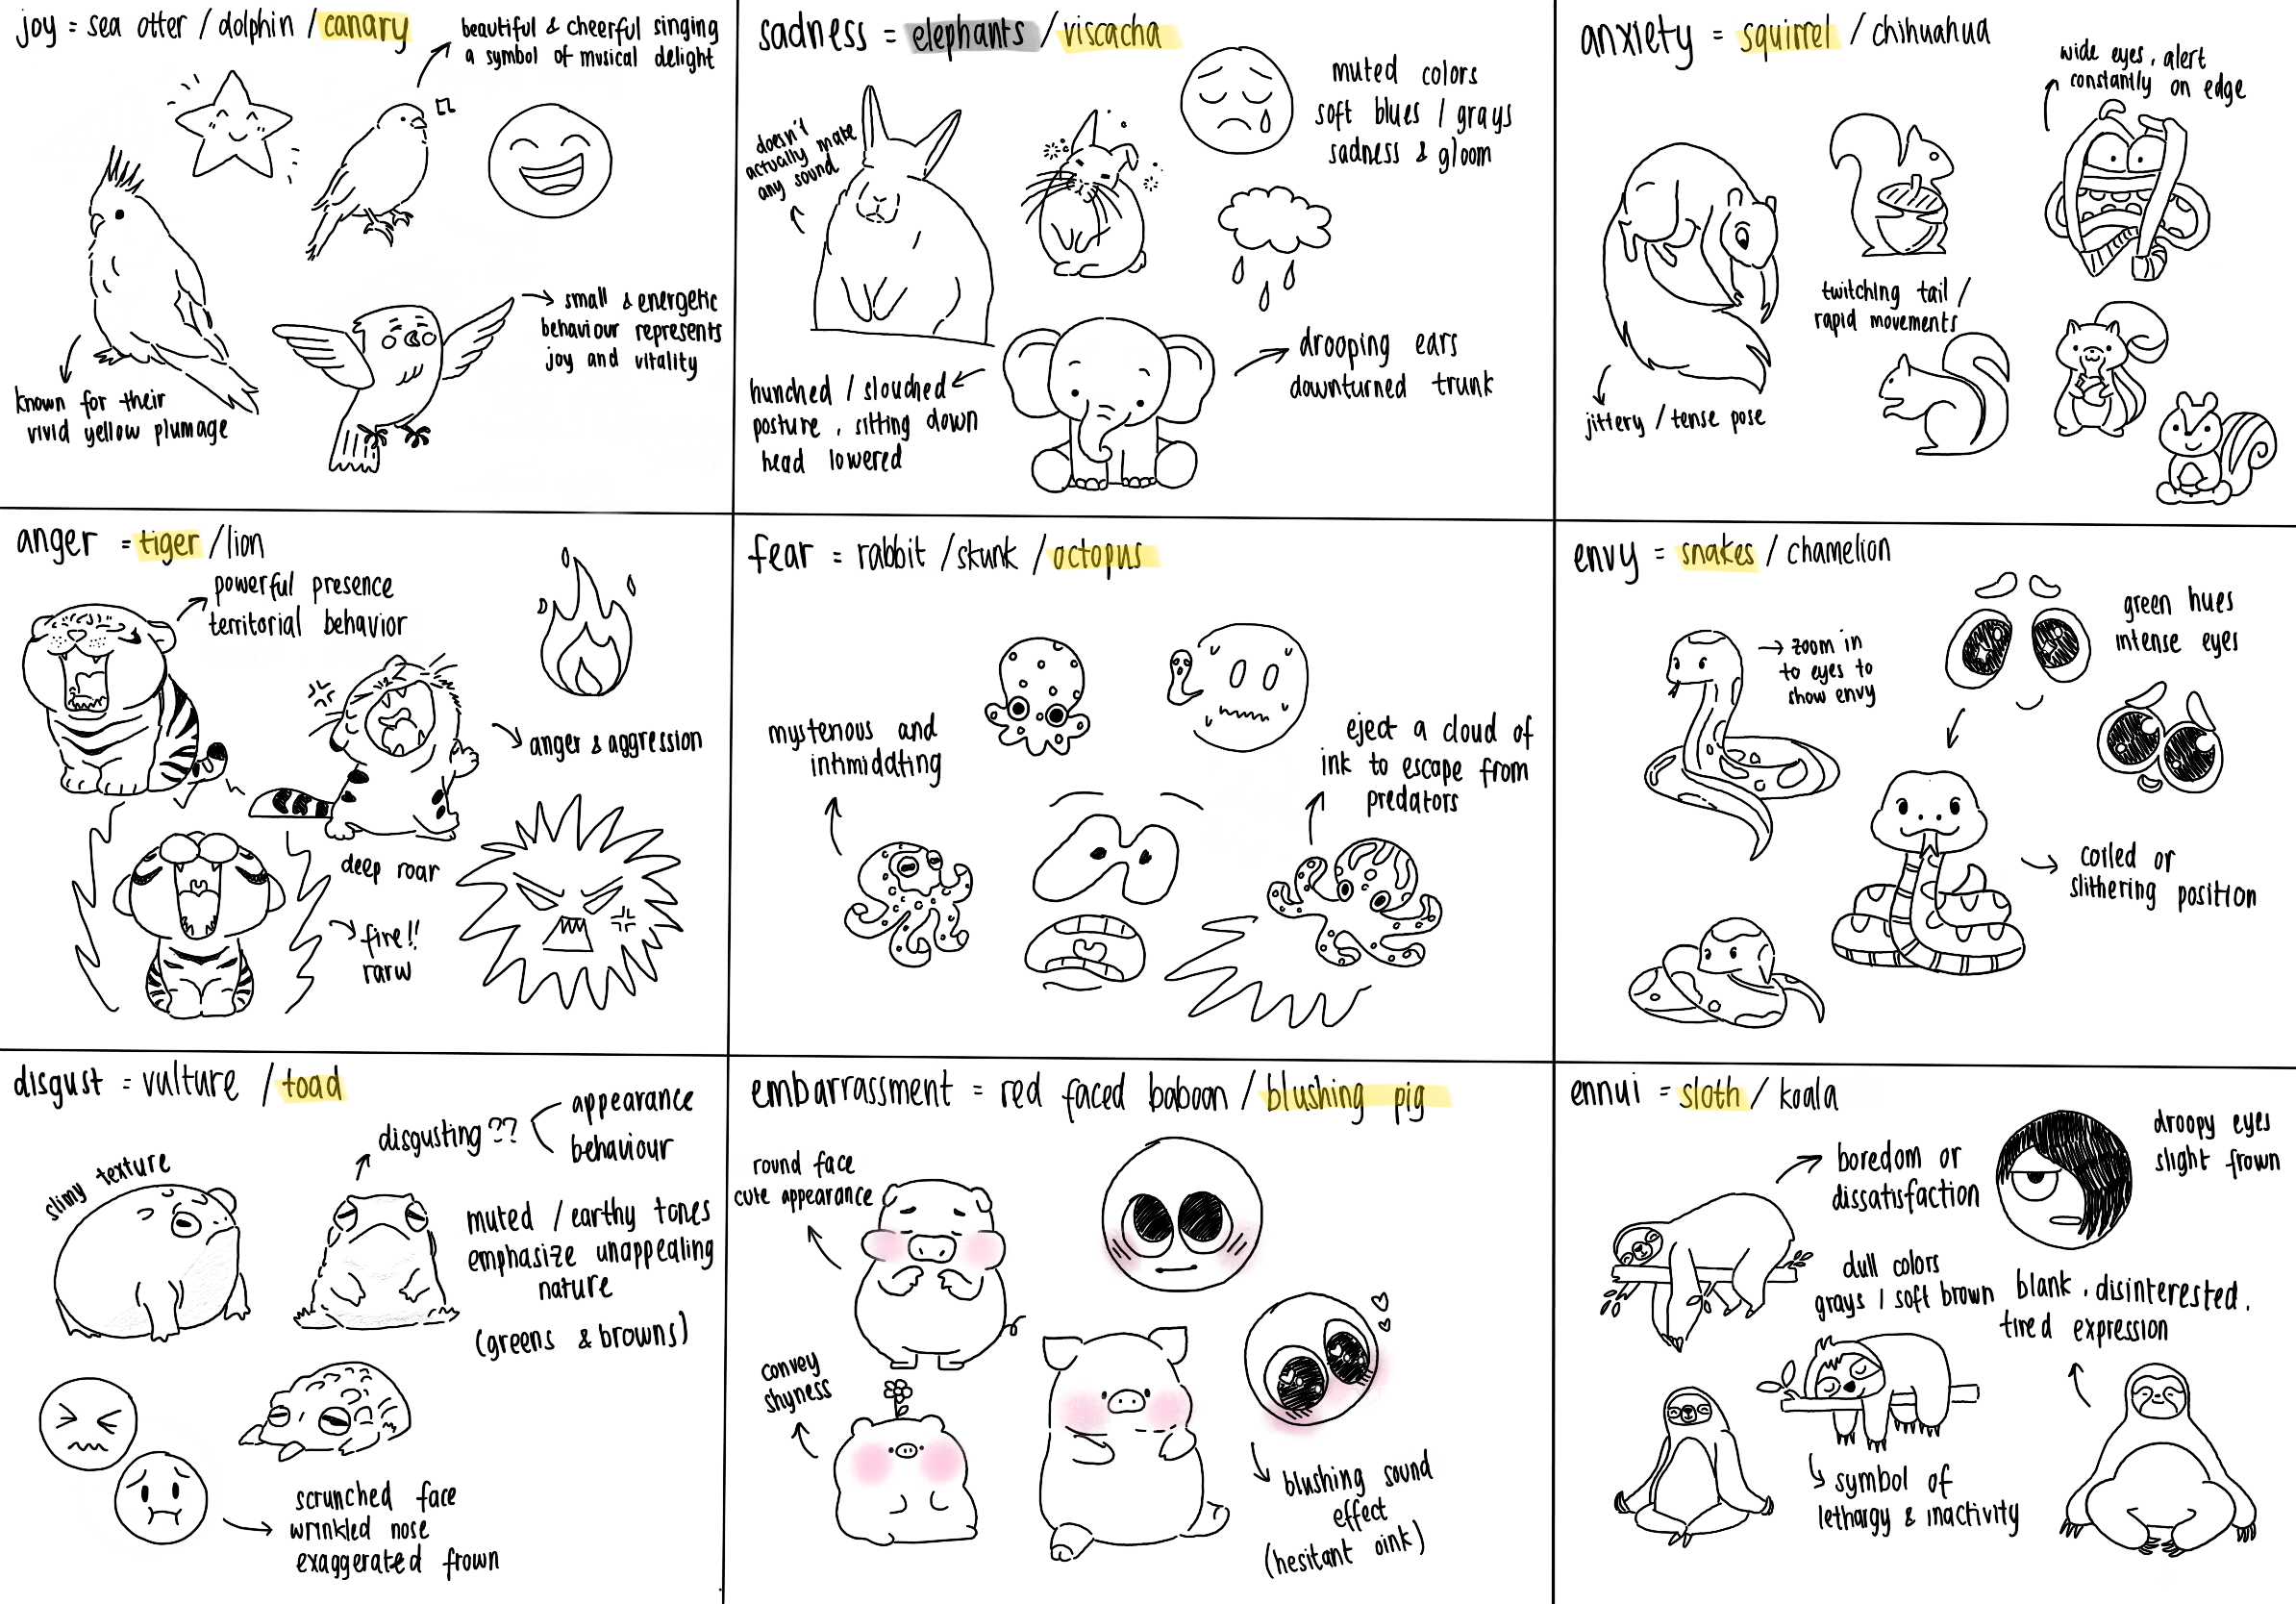 joy = sea otter / dolphin / canary
beautiful & cheerful singing
a symbol of musical delight
known for their
vivid yellow plumage
small & energetic
behaviour represents
joy and vitality
sadness = elephants / viscacha
doesn't
actually make
any sound
muted colors
soft blues / grays
sadness & gloom
hunched / slouched
posture, sitting down
head lowered
drooping ears
downturned trunk
anxiety = squirrel / chihuahua
wide eyes, alert
constantly on edge
twitching tail /
rapid movements
jittery / tense pose
anger = tiger / lion
powerful presence
territorial behavior
anger & aggression
deep roar
fire!!
rarw
fear = rabbit / skunk / octopus
mysterious and
intimidating
eject a cloud of
ink to escape from
predators
envy = snakes / chamelion
zoom in
to eyes to
show envy
green hues
intense eyes
coiled or
slithering position
disgust = vulture / toad
slimy texture
disgusting??
appearance
behaviour
muted / earthy tones
emphasize unappealing
nature
(greens & browns)
scrunched face
wrinkled nose
exaggerated frown
embarrassment = red faced baboon / blushing pig
round face
cute appearance
convey
shyness
blushing sound
effect
(hesitant oink)
ennui = sloth / koala
boredom or
dissatisfaction
droopy eyes
slight frown
dull colors
grays / soft brown
blank, disinterested,
tired expression
symbol of
lethargy & inactivity